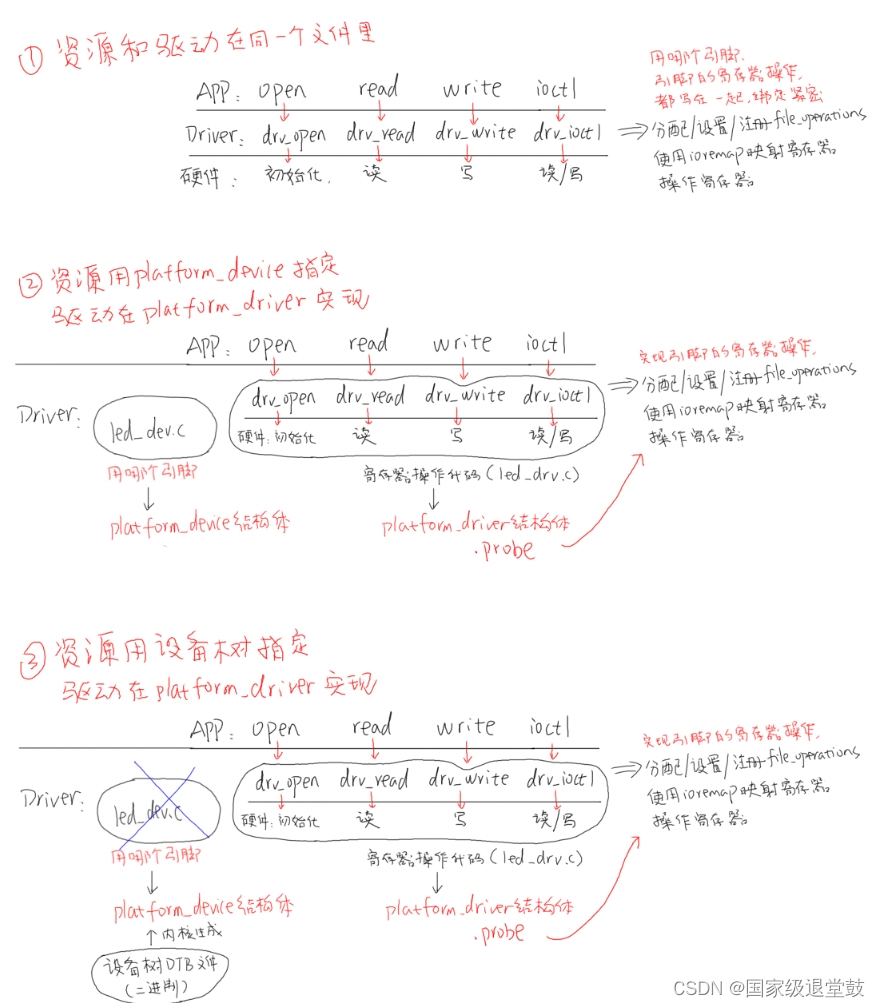 ① 资源和驱动在同一个文件里
用哪个引脚,
引脚的寄存器操作,
都写在一起,绑定紧密
APP: open read write ioctl
Driver: drv_open drv_read drv_write drv_ioctl
硬件: 初始化. 读 写 读/写
⇒分配/设置/注册file_operations
使用ioremap映射寄存器
操作寄存器
② 资源用platform_device指定
驱动在platform_driver实现
APP: open read write ioctl
Driver: led_dev.c
drv_open drv_read drv_write drv_ioctl
硬件:初始化 读 写 读/写
实现引脚的寄存器操作,
⇒分配/设置/注册file_operations
使用ioremap映射寄存器
操作寄存器
用哪个引脚
寄存器操作代码(led_drv.c)
↓ ↓
platform_device结构体
platform_driver结构体
.probe
③ 资源用设备树指定
驱动在platform_driver实现
APP: open read write ioctl
Driver: led_dev.c
drv_open drv_read drv_write drv_ioctl
硬件:初始化 读 写 读/写
实现引脚的寄存器操作,
⇒分配/设置/注册file_operations
使用ioremap映射寄存器
操作寄存器
用哪个引脚
寄存器操作代码(led_drv.c)
↓ ↓
platform_device结构体
platform_driver结构体
.probe
↑内核生成
设备树DTB文件
(二进制)
CSDN @国家级退堂鼓